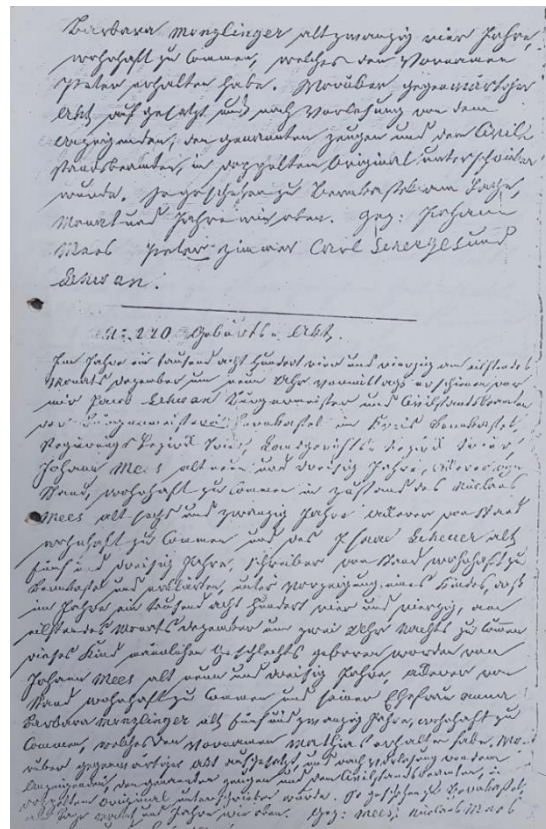 Barbara Menzlinger alt zwanzig vier Jahre,
wohnhaft zu Commen, welches den Vornamen
Peter erhalten habe. Worüber gegenwärtiger
Akt auf gesetzt und nach Vorlesung von dem
Anzeigenden, den genannten Zeugen und dem Civil
standsbeamten, in doppelten Original unterschrieben
wurde. So geschehen zu Bernkastel am Tage,
Monat und Jahre wie oben. Gez: Johann
Mees Peter Zimmer Carl Scherges und
Schwan.
N: 270 Geburts-Akt.
Im Jahre ein tausend acht hundert vier und vierzig am eilften des
Monats Dezember um neun Uhr vormittags erschienen vor
mir Jacob Schwan Bürgermeister und Civilstandsbeamten
der Bürgermeisterei Bernkastel im Kreis Bernkastel,
Regierungs Bezirk Trier, Landgerichts-Bezirk Trier,
Johann Mees alt neun und dreisig Jahre, Ackerer von
Stand, wohnhaft zu Commen in zustand des Nicolaus
Mees alt sechs und zwanzig Jahre Ackerer von Stand
wohnhaft zu Commen und des Scheuer alt
fünf und dreisig Jahre, Schreiber von Stand wohnhaft zu
Bernkastel und erklärten, unter Vorzeigung eines Kindes, daß
im Jahre ein tausend acht hundert vier und vierzig, am
eilften des Monats Dezember um zwei Uhr Nachts zu Commen
dieses Kind männlichen Geschlechts geboren worden von
Johann Mees alt neun und dreisig Jahre, Ackerer von
Stand wohnhaft zu Commen und seiner Ehefrau Anna
Barbara Menzlinger alt fünf und zwanzig Jahre, wohnhaft zu
Commen, welches den Vornamen Mathias erhalten habe, Wo-
rüber gegenwärtiger Akt aufgesetzt, und nach Vorlesung von dem
Anzeigenden, den genannten Zeugen und dem Civilstandsbeamten, in
doppelten Original unterschrieben wurde. So geschehen zu Bernkastel,
am Tage Monat und Jahre wie oben. Gez: Mees, Nicolaus Mees